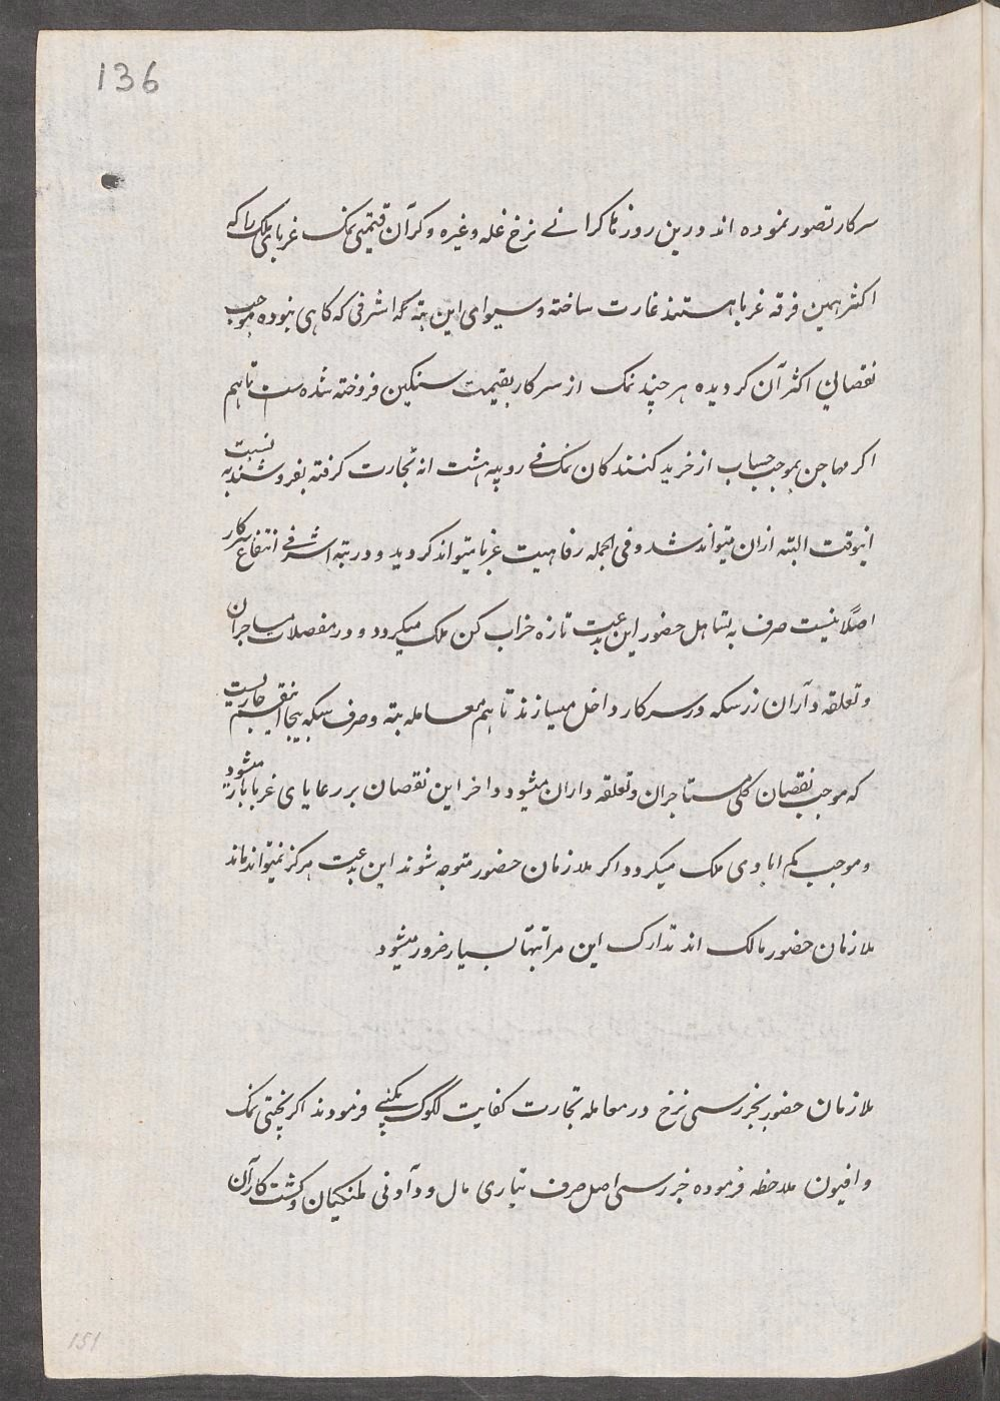 136
سرکار تصور نموده اند درین روزها کرانے نرخ غله وغیره وکرآن قیمتی نمک غربای ملک را که
اکثر همین فرقه غربا هستند غارت ساخته وسیوای این بته که اشرفی که کاهی نبوده موجب
نقصان اکثر آن کردیده هر چند نمک از سرکار بقیمت سنکین فروخته شده ست تا هم
اکر مهاجن بموجب حساب از خرید کنندکان نمک فے روپیه هشت انه تجارت کرفته بفروشند به نسبت
اینوقت البته ارزان میتواند شد وفی الجمله رفاهیت غربا میتواند کردید و در بته اشرفے انتفاع سرکار
اصلًا نیست صرف به تساهل حضور این بدعت تازه خراب کن ملک میکردد و در مفصلات مساجران
وتعلقه دآران زر سکه در سرکار داخل میسازند تا هم معامله بته وصرف سکه بیجا بقسم جاریست
که موجب نقصان کلی مستاجران وتعلقه داران میشود واخر این نقصان بر رعایای غربا بار میشود
وموجب کم ابادی ملک میکردد اکر ملازمان حضور متوجه شوند این بدعت هرکز نمیتواند ماند
ملازمان حضور مالک اند تدارک این مراتبها بسیار ضرور میشود
ملازمان حضور بخبررسی نرخ در معامله تجارت کفایت لکوک کمپنے فرمودند اکر پختی نمک
وافیون ملاحظه فرموده خبررسی اصل صرف تیاری مال و دآدنی ملنکیان وکشت کارآن
151